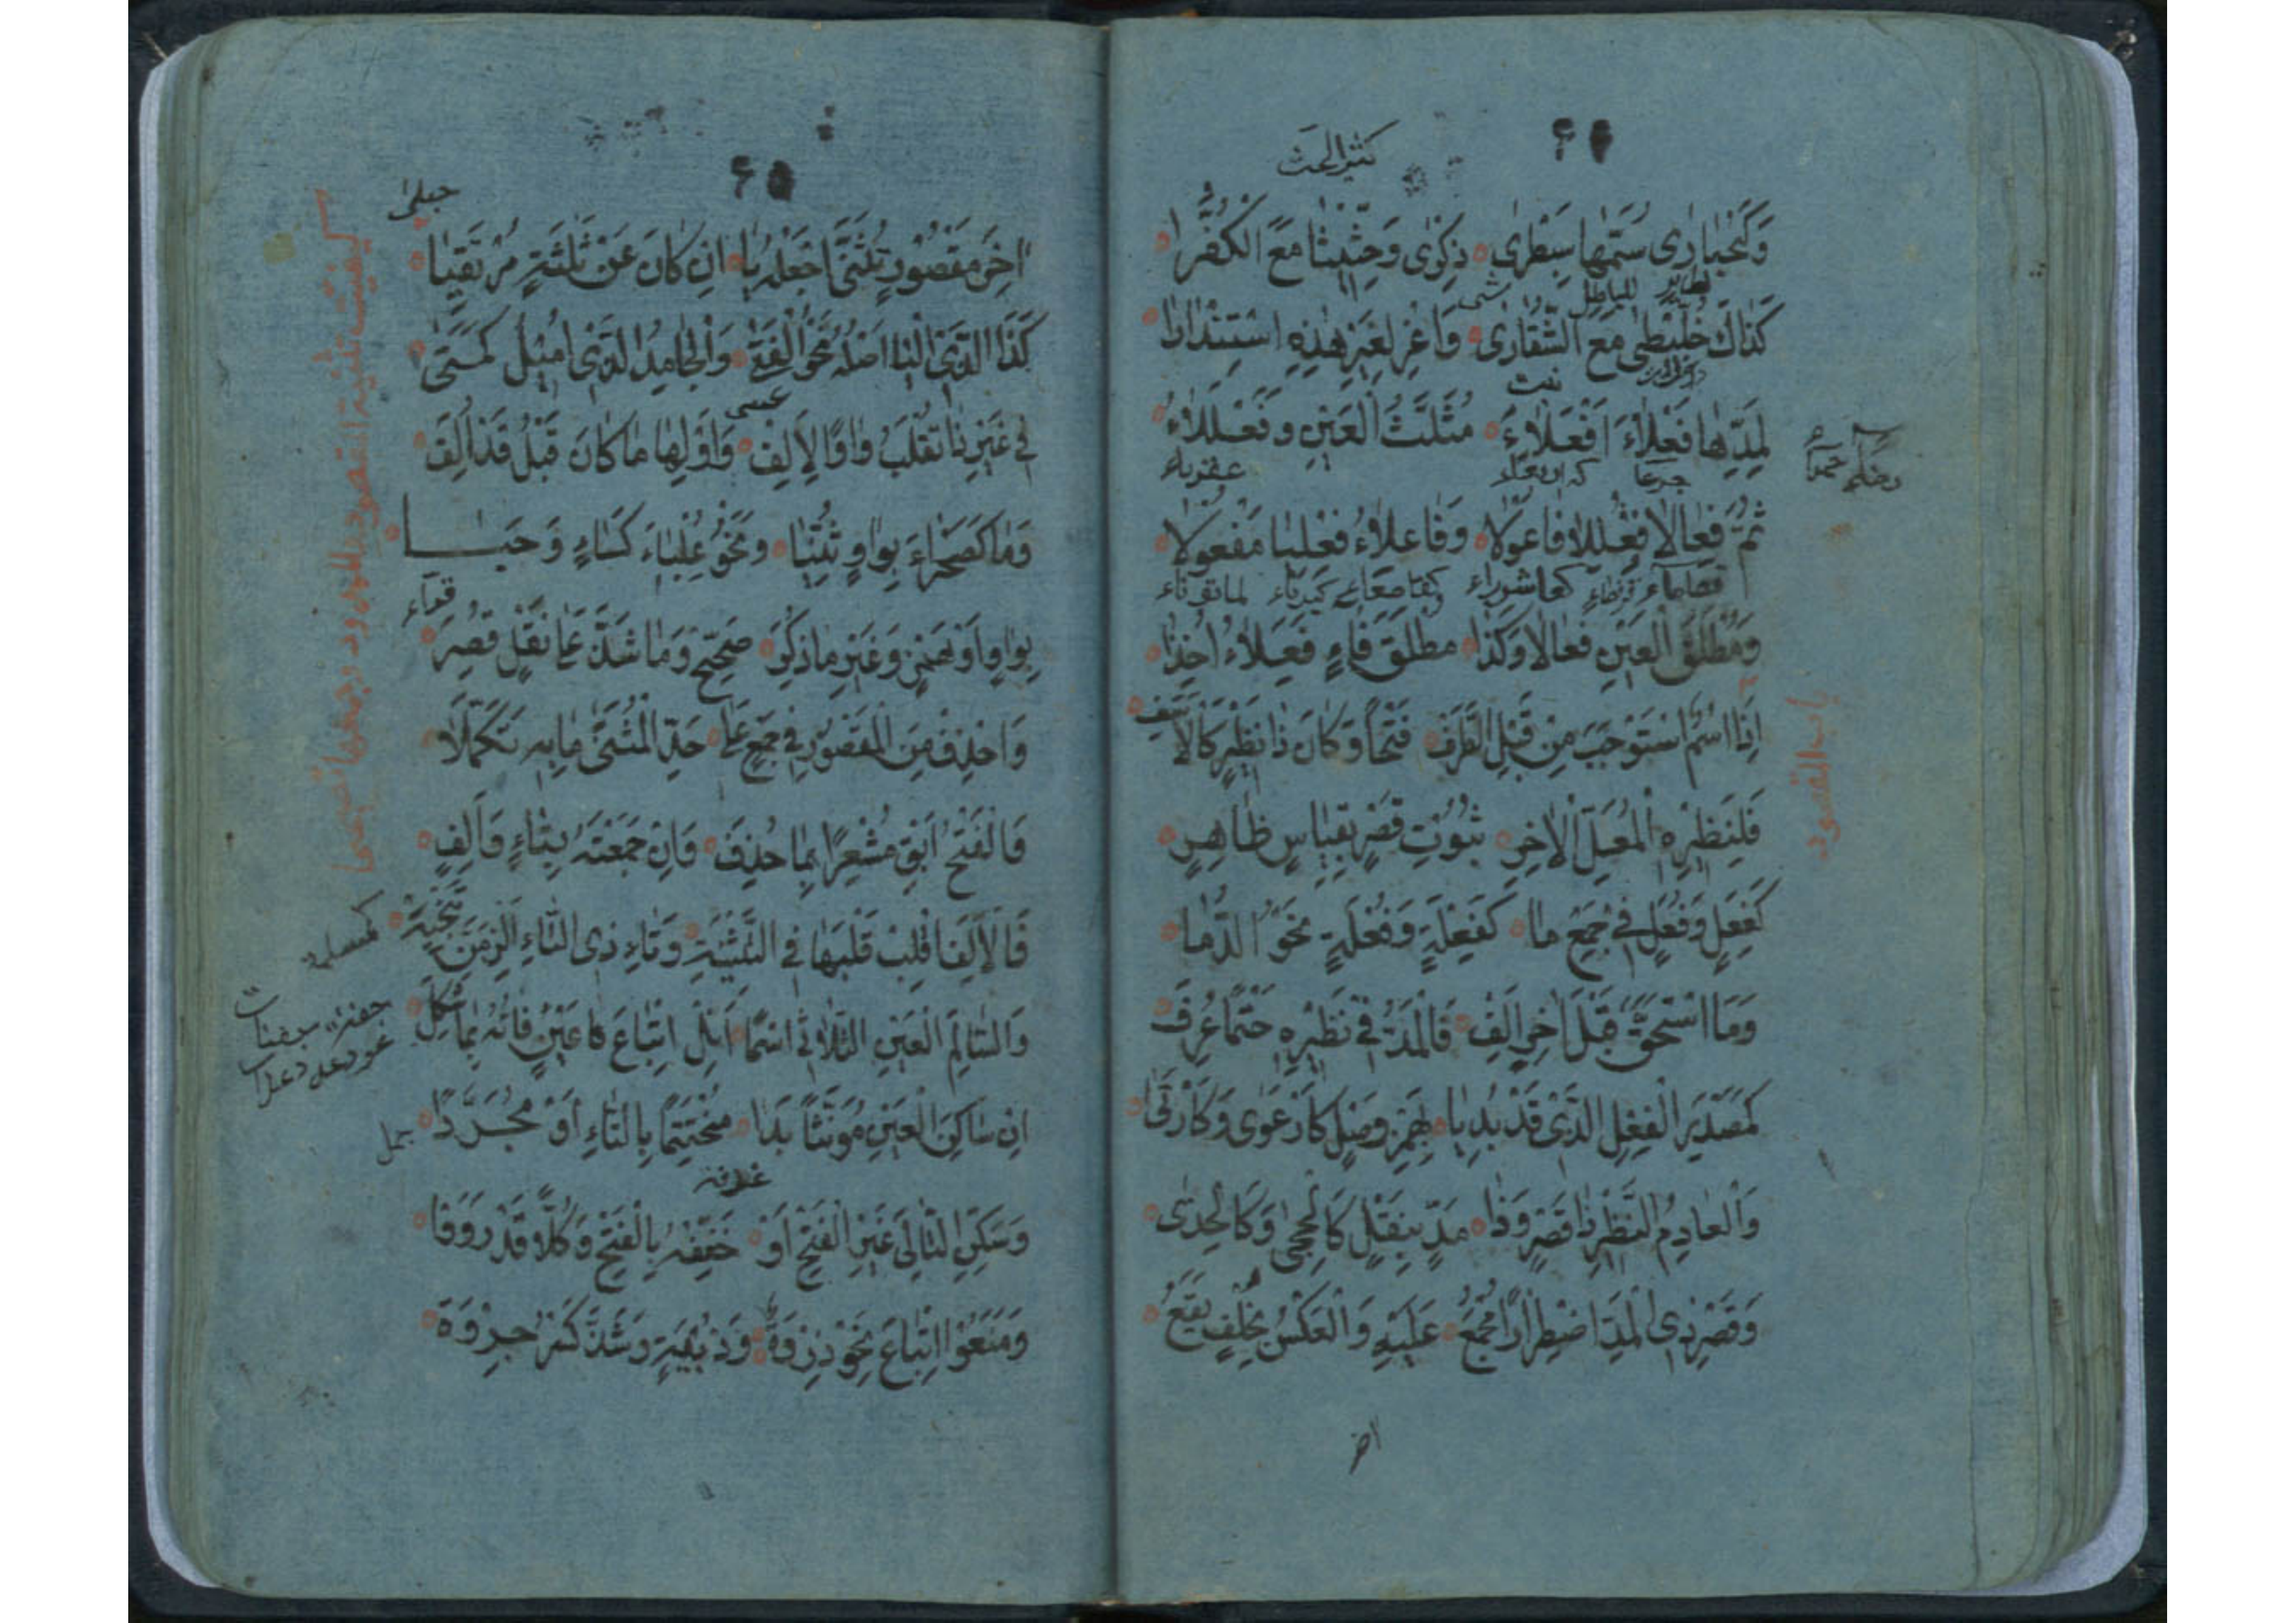 ۶۴
كثير الحث
وَكَحُبٰارٰى سُمَّهٰا سِبَطْرٰى ذِكْرٰى وَحِثّيثٰا مَعَ الكُفُرّٰا
لطاير للباطل
كَذٰاكَ خُلَّيْطٰى مَعَ الشُّقّٰارٰى وَاعْزُ لِغَيْرِ هٰذِهِ اسْتِنْدٰارٰا
لِمَدِّهٰا فَعْلٰاءُ اَفْعَلٰاءُ مُثَلَّثُ الْعَيْنِ وَفَعْلَلٰاءُ
جرعا عقرباء
ثُمَّ فِعٰالٰا فُعْلُلٰا فٰاعُولٰا وَفٰاعِلٰاءُ فِعْلِيٰا مَفْعُولٰا
قصاصاء قرفصاء كعاشوراء كقاصعاء كبرياء
وَمُطْلَقَ الْعَيْنِ فَعٰالٰا وَكَذٰا مُطْلَقَ فٰاءٍ فَعَلٰاءُ اُخِذٰا
باب المقصور
اِذَا اسْمٌ اسْتَوْجَبَ مِنْ قَبْلِ الطَّرَفِ فَتْحًا وَكٰانَ ذٰا نَظِيرٍ كَالْاَسَفِ
فَلِنَظِيرِهِ الْمُعَلِّ الْاٰخِرِ ثُبُوتُ قَصْرٍ بِقِيٰاسٍ ظٰاهِرٍ
كَفِعَلٍ وَفُعَلٍ فِي جَمْعِ مٰا كَفِعْلَةٍ وَفُعْلَةٍ نَحْوُ الدُّمٰا
وَمَا اسْتَحَقَّ قَبْلَ اٰخِرٍ اَلِفْ فَالْمَدُّ فِي نَظِيرِهِ حَتْمًا عُرِفَ
كَمَصْدَرِ الْفِعْلِ الَّذِي قَدْ بُدِيٰا بِهَمْزِ وَصْلٍ كَارْعَوٰى وَكَارْتَأٰى
وَالْعٰادِمُ النَّظِيرِ ذٰا قَصْرٍ وَذٰا مَدٍّ بِنَقْلٍ كَالْحِجٰى وَكَالْحِذٰى
وَقَصْرُ ذِي الْمَدِّ اضْطِرٰارًا مُجْمَعٌ عَلَيْهِ وَالْعَكْسُ بِخُلْفٍ يَقَعُ
اخر
۶۵
حبلى
كيفيت تثنية المقصور والممدود وجمعهما تصحيحا
اٰخِرَ مَقْصُورٍ تُثَنّٰى اجْعَلْهُ يٰا اِنْ كٰانَ عَنْ ثَلٰثَةٍ مُرْتَقِيٰا
كَذَا الَّذِي الْيٰا اَصْلُهُ نَحْوُ الْفَتٰى وَالْجٰامِدُ الَّذِي اُمِيلَ كَمَتٰى
عيسى
فِي غَيْرِ ذٰا تُقْلَبُ وٰاوًا الْاَلِفْ وَاَوْلِهٰا مٰا كٰانَ قَبْلُ قَدْ اُلِفَ
وَمٰا كَصَحْرٰاءَ بِوٰاوٍ ثُنِّيٰا وَنَحْوُ عِلْبٰاءَ كِسٰاءٍ وَحَيٰا
بِوٰاوٍ اَوْ هَمْزٍ وَغَيْرِ مٰا ذُكِرَ صَحِّحْ وَمٰا شَذَّ عَلٰى نَقْلٍ قُصِرَ
وَاحْذِفْ مِنَ الْمَقْصُورِ فِي جَمْعٍ عَلٰى حَدِّ الْمُثَنّٰى مٰا بِهِ تَكَمَّلٰا
فَالْفَتْحَ اَبْقِ مُشْعِرًا بِمٰا حُذِفَ وَاِنْ جَمَعْتَهُ بِتٰاءٍ وَاَلِفٍ
فَالْاَلِفَ اقْلِبْ قَلْبَهٰا فِي التَّثْنِيَةِ وَتٰاءَ ذِي التّٰاءِ اَلْزِمَنَّ تَنْحِيَةً
كمسلمة
وَالسّٰالِمَ الْعَيْنِ الثُّلٰاثِي اسْمًا اَنِلْ اِتْبٰاعَ عَيْنٍ فٰائَهُ بِمٰا شُكِلَ
جفنة جفنات
دعد دعدات
اِنْ سٰاكِنَ الْعَيْنِ مُؤَنَّثًا بَدٰا مُخْتَتِمًا بِالتّٰاءِ اَوْ مُجَرَّدًا
جمل
غرفة
وَسَكِّنِ التّٰالِيَ غَيْرَ الْفَتْحِ اَوْ خَفِّفْهُ بِالْفَتْحِ وَكُلًّا قَدْ رَوَوْا
وَمَنَعُوا اتْبٰاعَ نَحْوِ ذِرْوَةٍ وَذُبْيَةٍ وَشَذَّ كَسْرُ جِرْوَةٍ